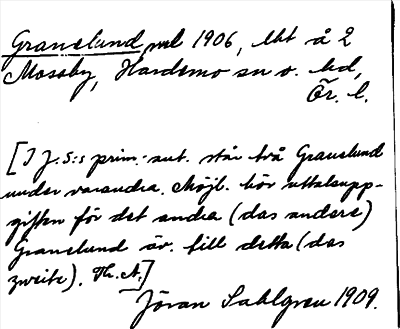 Granelund, ml 1906, lht å 2
Mossby, Hardemo sn o. hd,
Ör. l.
[I J. S:s prim.-aut. står två Granelund
under varandra. Möjl. hör uttalsupp-
giften för det andra (das andere)
Granelund äv. till detta (das
zweite). Th. A.]
Jöran Sahlgren 1909.